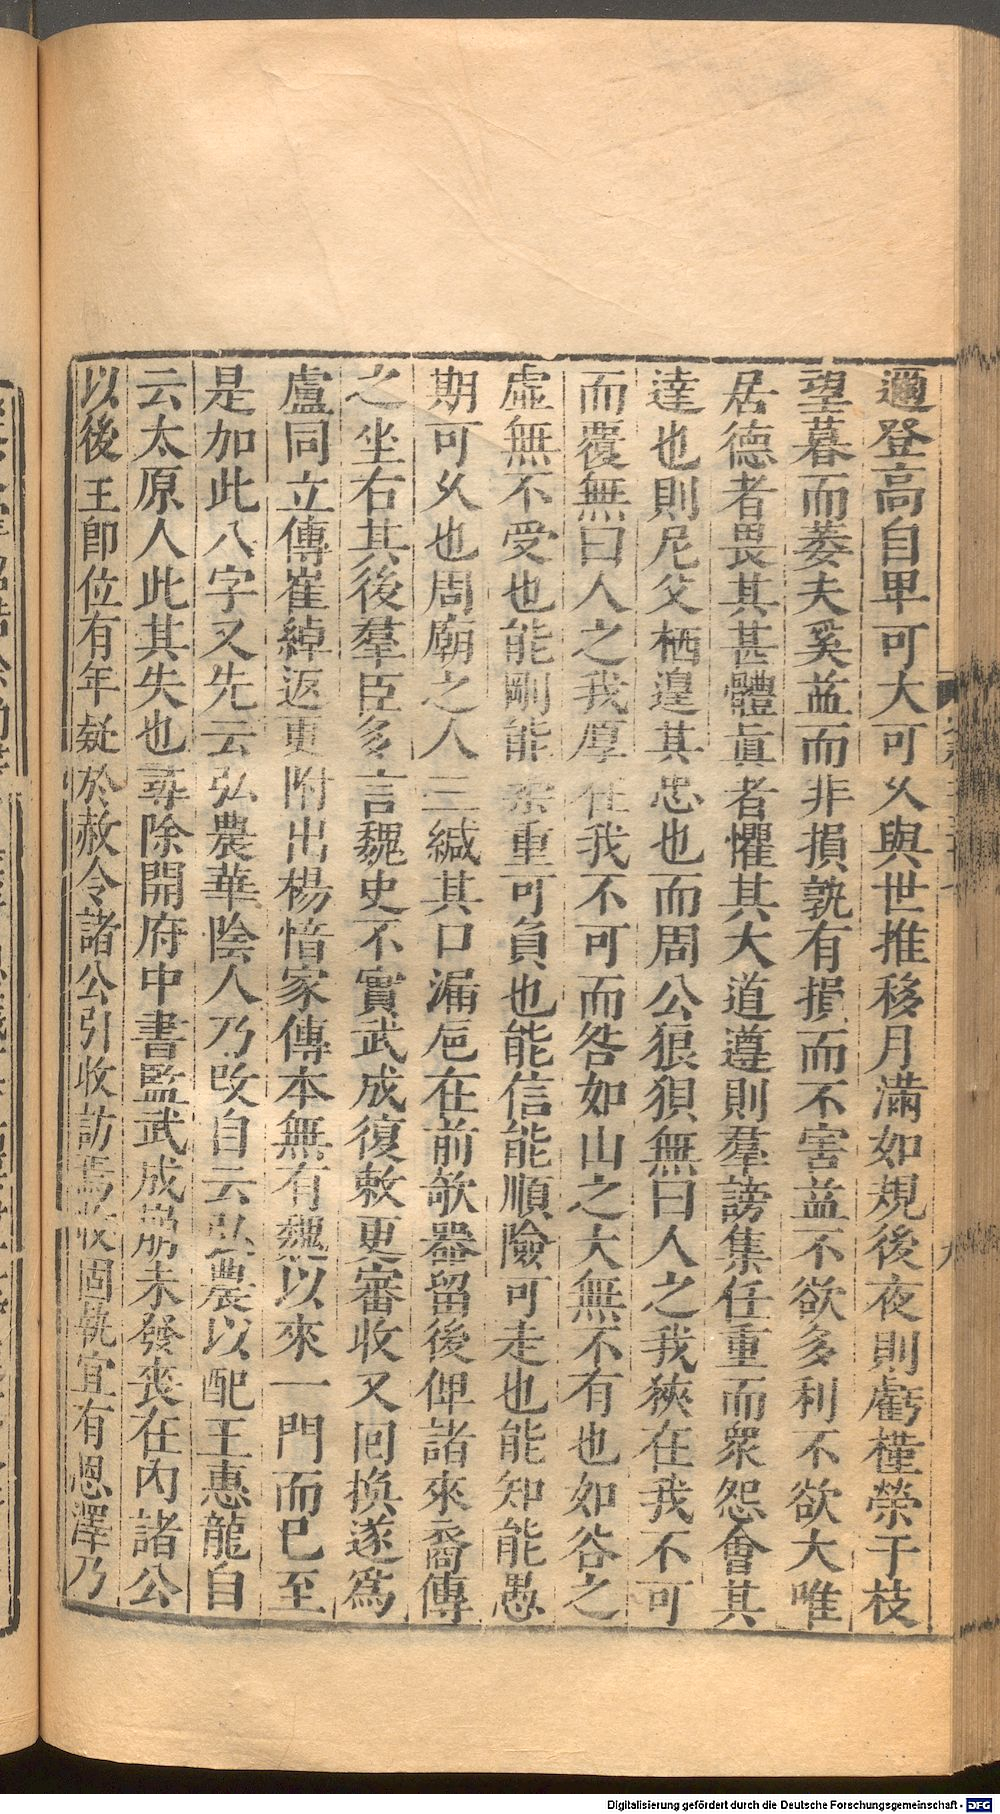 邇登高自卑可大可久與世推移月滿如規後夜則虧槿榮于枝
望暮而萎夫奚益而非損孰有損而不害益不欲多利不欲大唯
居德者畏其甚體眞者懼其大道遵則羣謗集任重而衆怨會其
達也則尼父栖遑其忠也而周公狼狽無曰人之我狹在我不可
而覆無曰人之我厚在我不可而咎如山之大無不有也如谷之
虛無不受也能剛能柔重可負也能信能順險可走也能知能愚
期可久也周廟之人三緘其口漏巵在前欹器留後俾諸來裔傳
之坐右其後羣臣多言魏史不實武成復敕更審收又回換遂爲
盧同立傳崔綽返更附出楊愔家傳本無有魏以來一門而已至
是加此八字又先云弘農華陰人乃改自云弘農以配王惠龍自
云太原人此其失也尋除開府中書監武成崩未發喪在內諸公
以後王卽位有年疑於赦令諸公引收訪焉收固執宜有恩澤乃
Digitalisierung gefördert durch die Deutsche Forschungsgemeinschaft - DFG